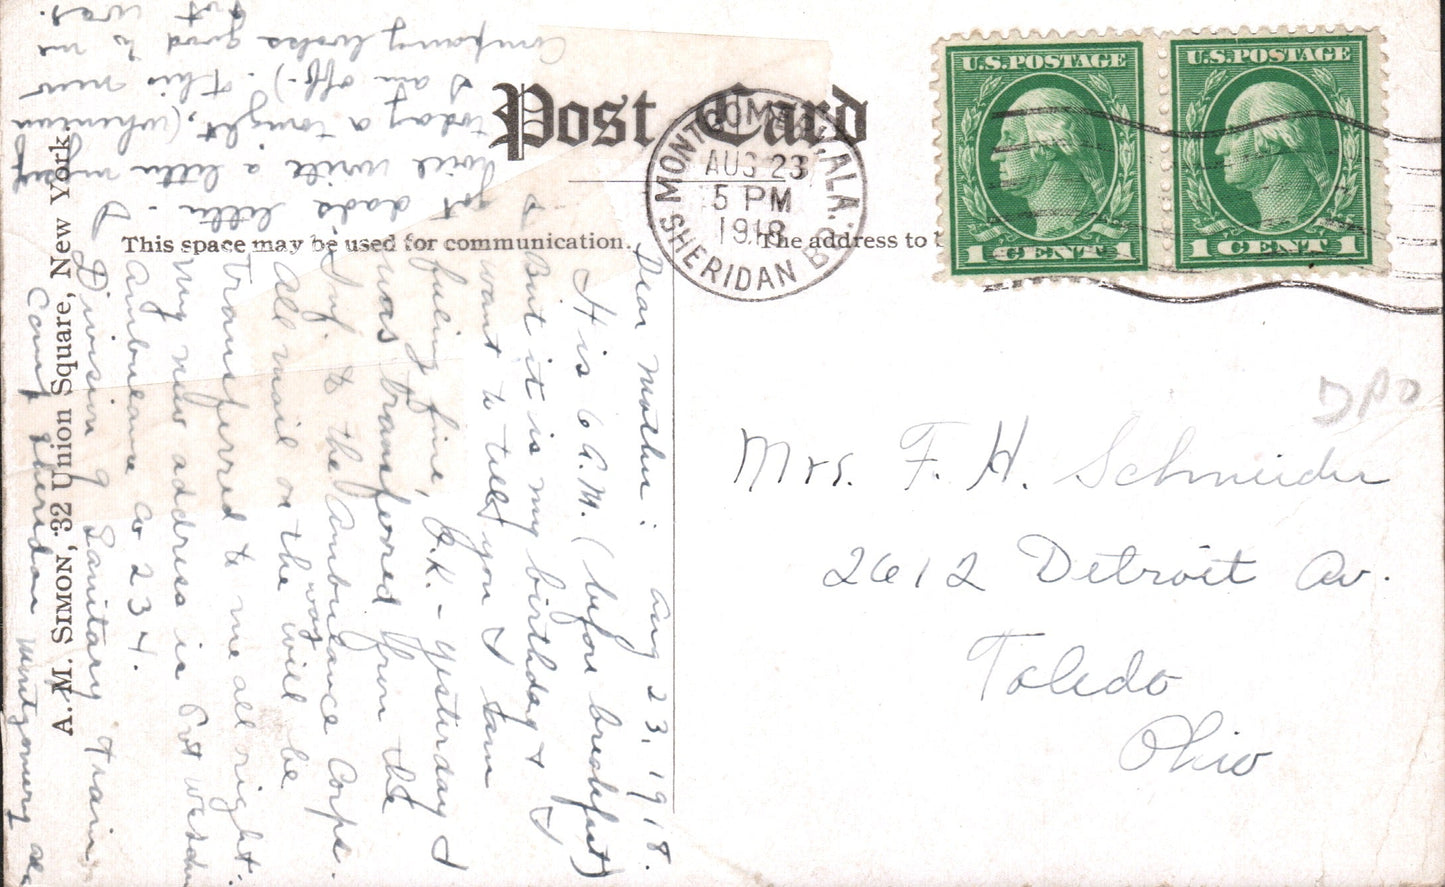 Post Card
This space may be used for communication.
The address to
A. M. SIMON, 32 Union Square, New York.
MONTGOMERY, ALA.
AUG 23
5 PM
1918
SHERIDAN BR.
U.S. POSTAGE
1 CENT 1
U.S. POSTAGE
1 CENT 1
DPO
Mrs. F. H. Schneider
2612 Detroit Av.
Toledo
Ohio
Aug 23, 1918.
Dear Mother:
It is 6 A.M. (before breakfast)
But it is my birthday &
want to tell you I am
fuling fine, O.K. - Yesterday I
was transferred from the
Inf. to the Ambulance Corps.
All mail on the way will be
transferred to me all right.
My new address is Pvt
Ambulance Co 234.
Division Sanitary Train
Camp Sheridan Montgomery Ala
I got dads letter. I
will write a letter
today or tonight, (when
I am off.) This new
Company looks good to me